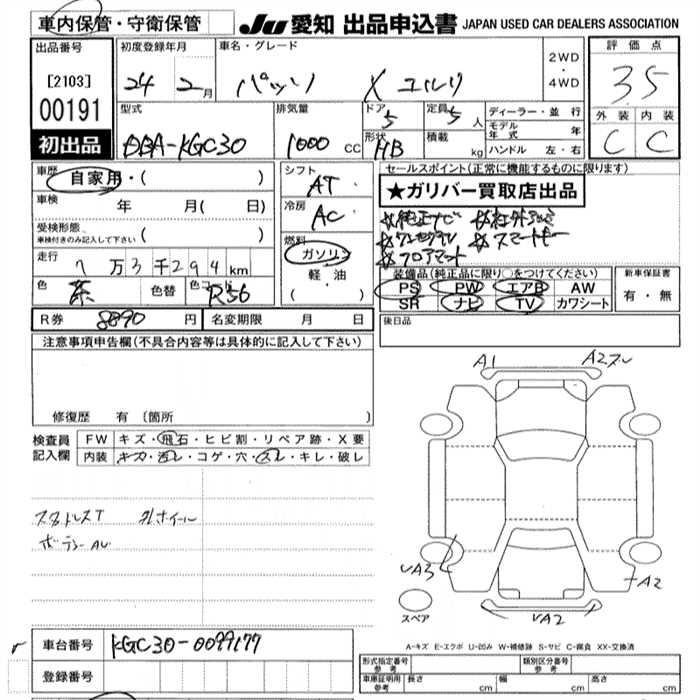 車内保管・守衛保管
JU 愛知 出品申込書 JAPAN USED CAR DEALERS ASSOCIATION
出品番号
[2103]
00191
初出品
初度登録年月
24年 2月
車名・グレード
パッソ X
2WD
・
4WD
評価点
3.5
外装 内装
C C
型式
DBA-KGC30
排気量
1000 CC
ドア
5
形状
HB
定員
5人
積載
kg
ディーラー・並行
モデル年式 年
ハンドル 左・右
車歴
自家用・( )
車検 年 月( 日)
受検形態
車検付きのみ記入して下さい ( )
走行
7万3千294km
色
茶
色替
R56
シフト
AT
冷房
AC
燃料
ガソリン
軽・油
( ・ )
R券 8890円
名変期限 月 日
セールスポイント(正常に機能するものに限ります)
★ガリバー買取店出品
☆純正ナビ
☆フロアマット
☆スマートキー
装備品(純正品に限り○をつけてください)
PS PW エアB AW
SR ナビ TV カワシート
新車保証書
有・無
後日品
注意事項申告欄(不具合内容等は具体的に記入して下さい)
修復歴 有 〔箇所
検査員
記入欄
FW キズ・飛石・ヒビ割・リペア跡・X要
内装 キズ・汚レ・コゲ・穴・スレ・キレ・破レ
スタドレスT
ボデーAU
A1
A2スレ
UA3
A2
UA2
スペア
A-キズ E-エクボ U-凹み W-補修跡 S-サビ C-腐食 XX-交換済
車台番号 KGC30-0099177
登録番号
形式指定番号
参考
類別区分番号
参考
車庫証明用
参考
長さ cm 幅 cm 高さ cm